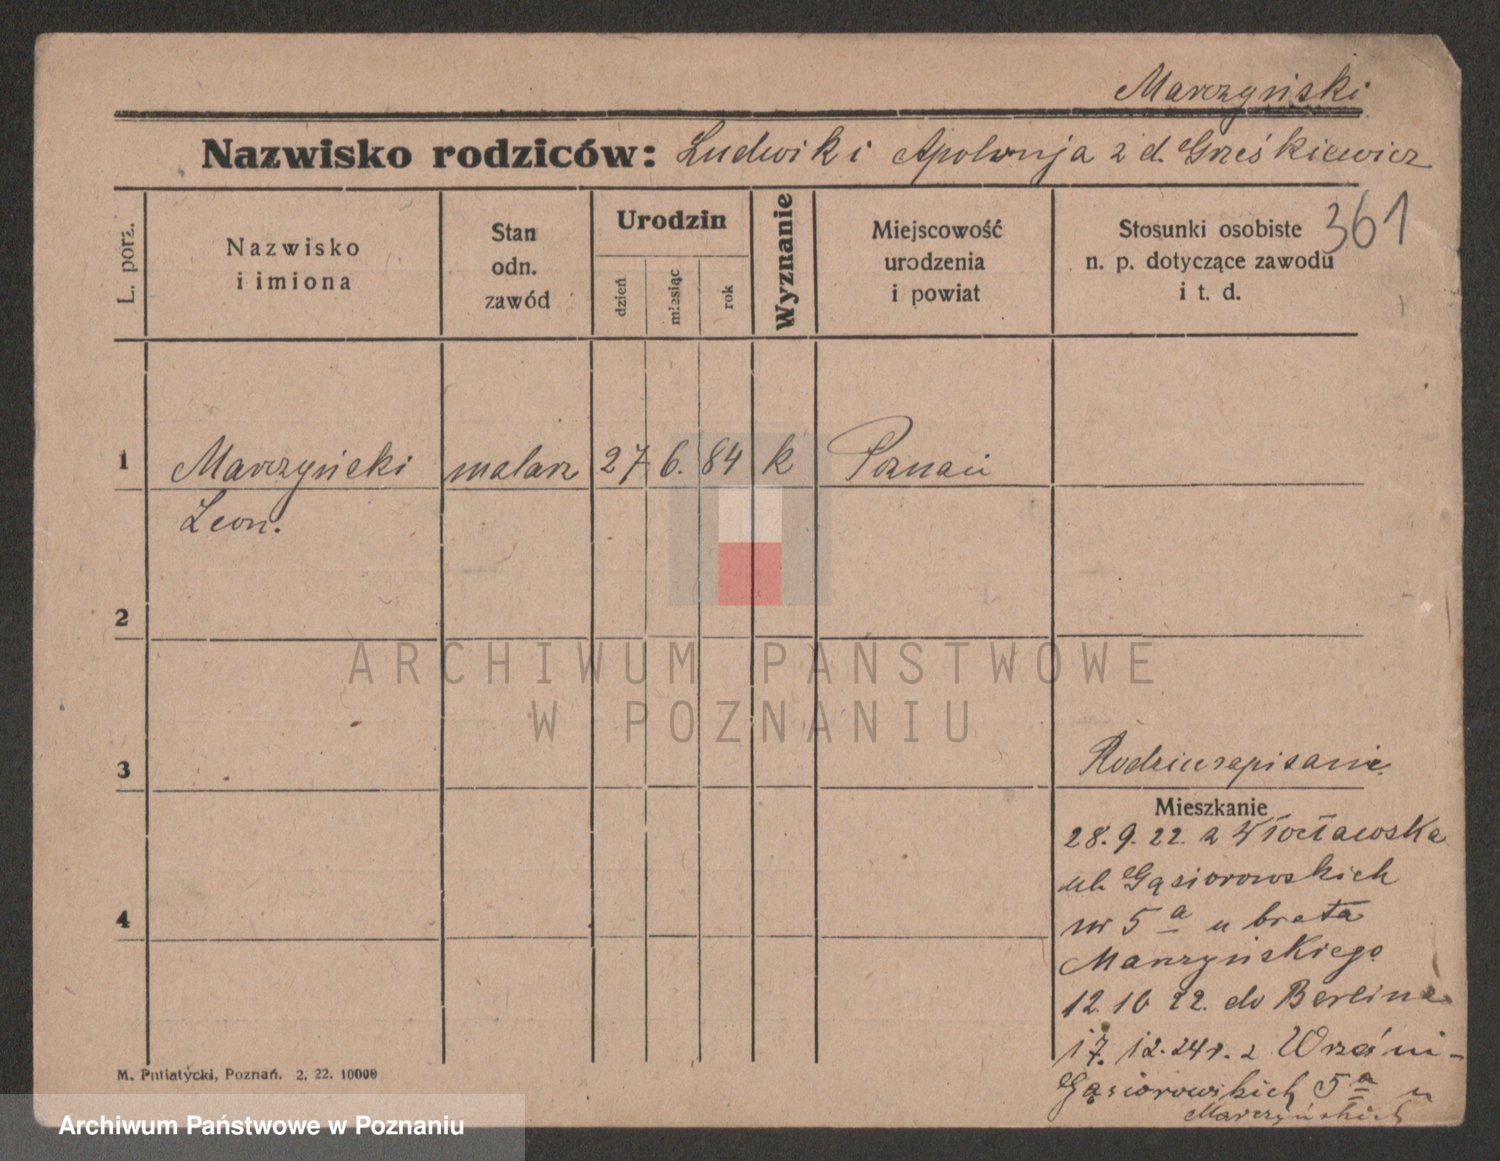 Marczyński
Nazwisko rodziców: Ludwik i Apolonja z d. Grześkiewicz
361
L. porz.
Nazwisko
i imiona
Stan
odn.
zawód
Urodzin
dzień
miesiąc
rok
Wyznanie
Miejscowość
urodzenia
i powiat
Stosunki osobiste
n. p. dotyczące zawodu
i t. d.
1 Marczyński malarz 27. 6. 84 k Poznań
Leon.
2
ARCHIWUM PAŃSTWOWE
W POZNANIU
3
Mieszkanie
28. 9. 22. z Włocławska
ul. Gąsiorowskich
nr 5 a u brata
Marczyńskiego
4
12. 10 22. do Berlina
17. 12. 24 r. z Wrześni-
Gąsiorowskich 5 a u
Marczyńskich
M. Putiatycki, Poznań. 2. 22. 10000
Archiwum Państwowe w Poznaniu